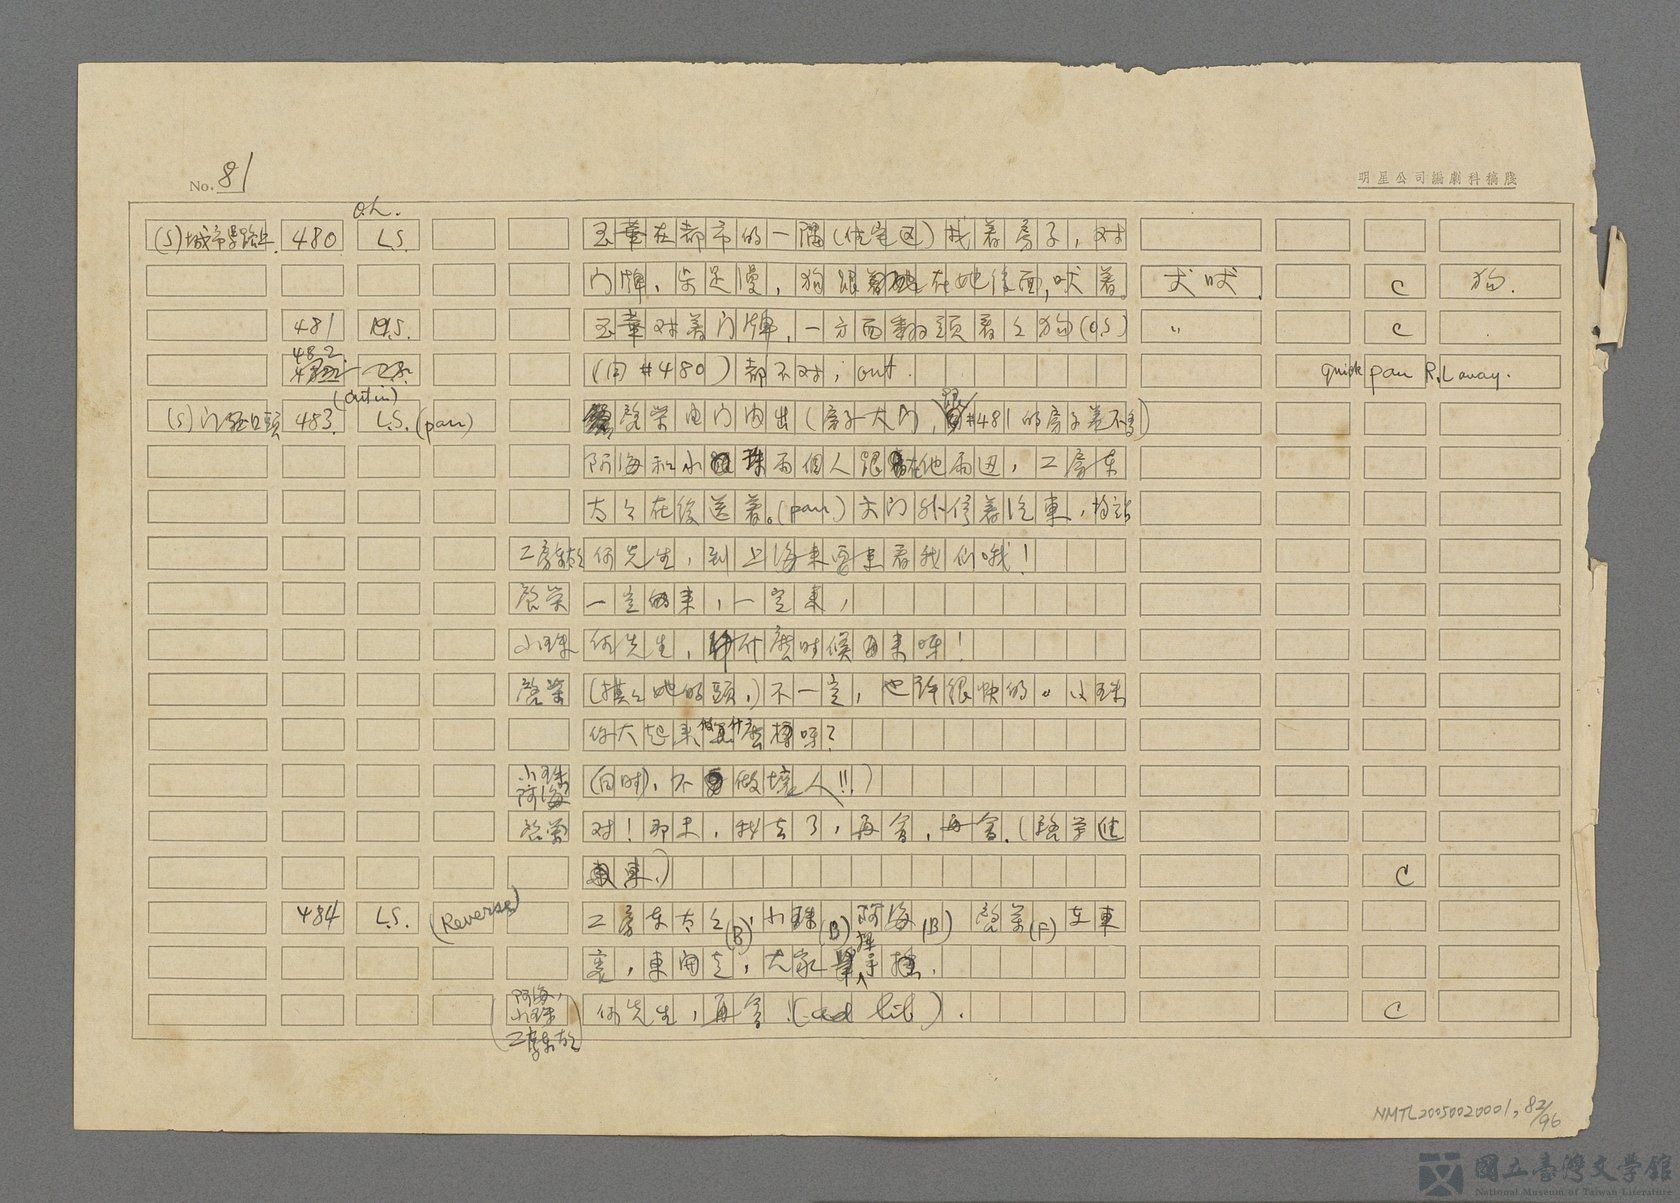 No. 81
明星公司編劇科稿牋
O.L.
480 L.S. 玉華在都市的一隅(住宅区)找着房子,对
门牌,朱足漫,狗跟在她後面,吠着。 犬吠. C 狗.
481 M.S. 玉華对着门牌,一方面翻頭看々狗(OS) 〃 C
482 (同#480)都不对,out. quick pan R.L away.
(Out in)
483. L.S. (pan) 啓荣由门内出(房子大门,跟#481的房子差不多)
阿海和小珠两個人跟在他两边,二房东
太々在後送着。(pan)大门外停着汽車,
二房东太太 何先生,到上海来要来看我们哦!
啓荣 一定来,一定来,
小珠 何先生,什麽时候再来呀!
啓荣 (摸々她的頭,)不一定,也许很快的。小珠
你大起来做什麽呀?
小珠
阿海 (同时),不做壞人!!)
啓荣 对!那末,我去了,再會,再會.(啓荣進
車,) C
484 L.S. (Reverse) 二房东太々(B)小珠(B)阿海(B) 啓荣(F)在車
裏,車開走,大家揮手.
阿海,
小珠
二房东太太 何先生,再會!(ad lib). C
NMTL20050020001, 82/96
國立臺灣文學館
National Museum of Taiwan Literature